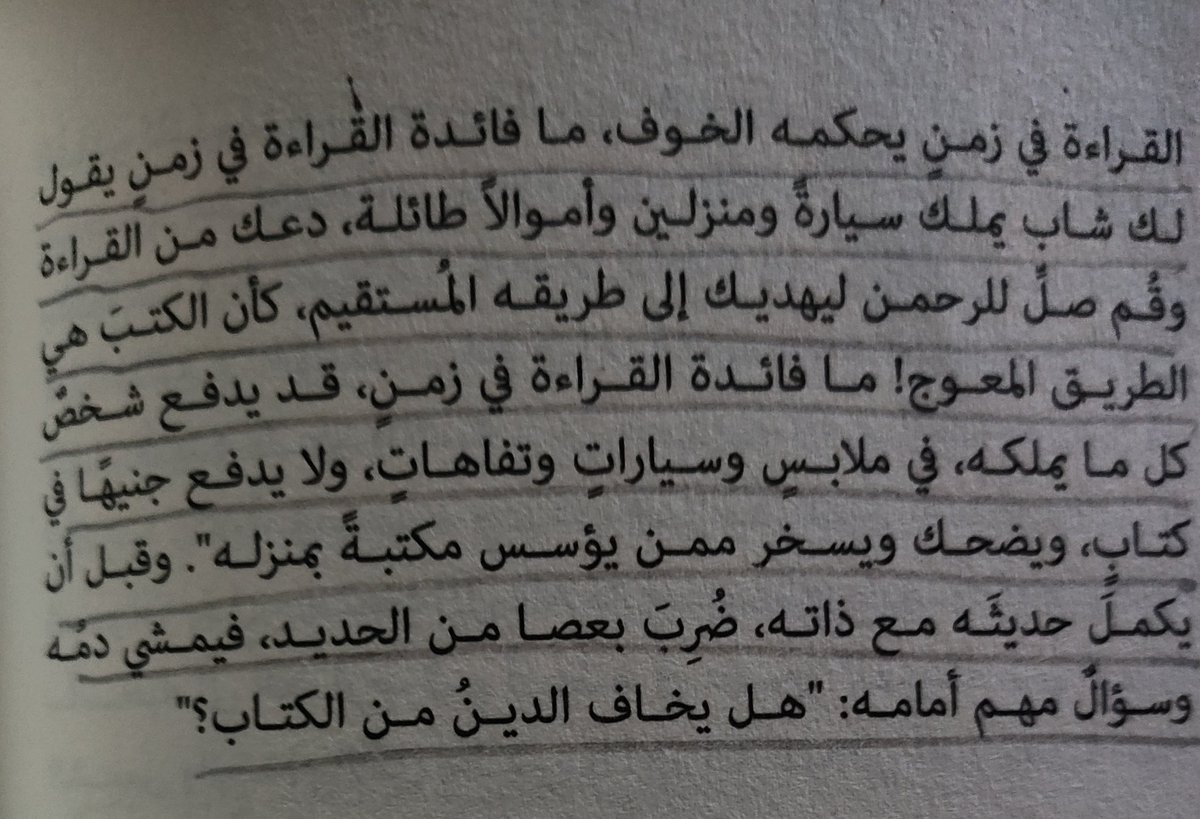 القراءة في زمنٍ يحكمه الخوف، ما فائدة القُراءة في زمنٍ يقول
لك شاب يملك سيارةً ومنزلين وأموالاً طائلة، دعك من القراءة
وقُم صلِّ للرحمن ليهديك إلى طريقه المُستقيم، كأن الكتبَ هي
الطريق المعوج! ما فائدة القراءة في زمنٍ، قد يدفع شخصٌ
كل ما يملكه، في ملابسٍ وسياراتٍ وتفاهاتٍ، ولا يدفع جنيهًا في
كتابٍ، ويضحك ويسخر ممن يؤسس مكتبةً بمنزله". وقبل أن
يكملَ حديثَه مع ذاته، ضُرِبَ بعصا من الحديد، فيمشي دمُه
وسؤالٌ مهم أمامه: "هل يخاف الدينُ من الكتاب؟"